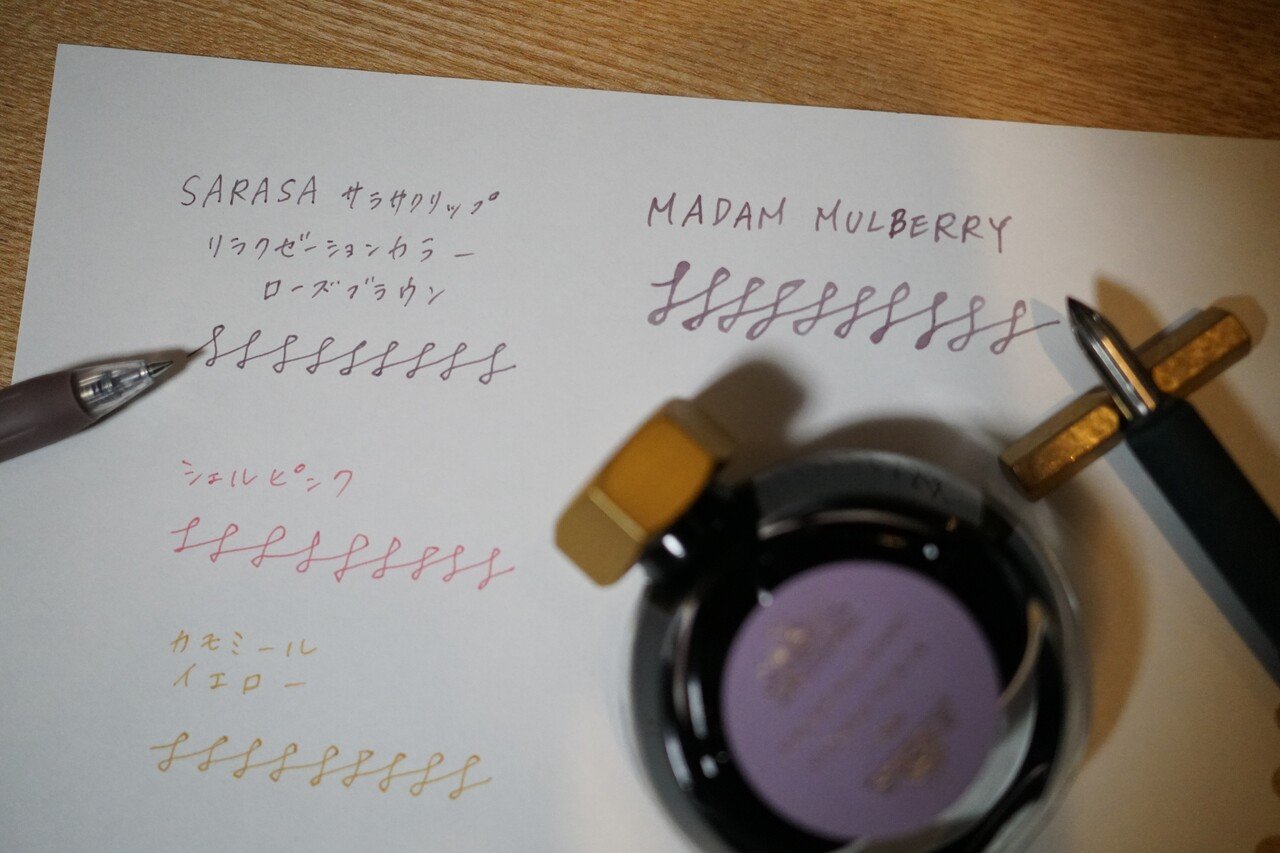 SARASA サラサクリップ
リラクゼーションカラー
ローズブラウン
シェルピンク
カモミール
イエロー
MADAM MULBERRY